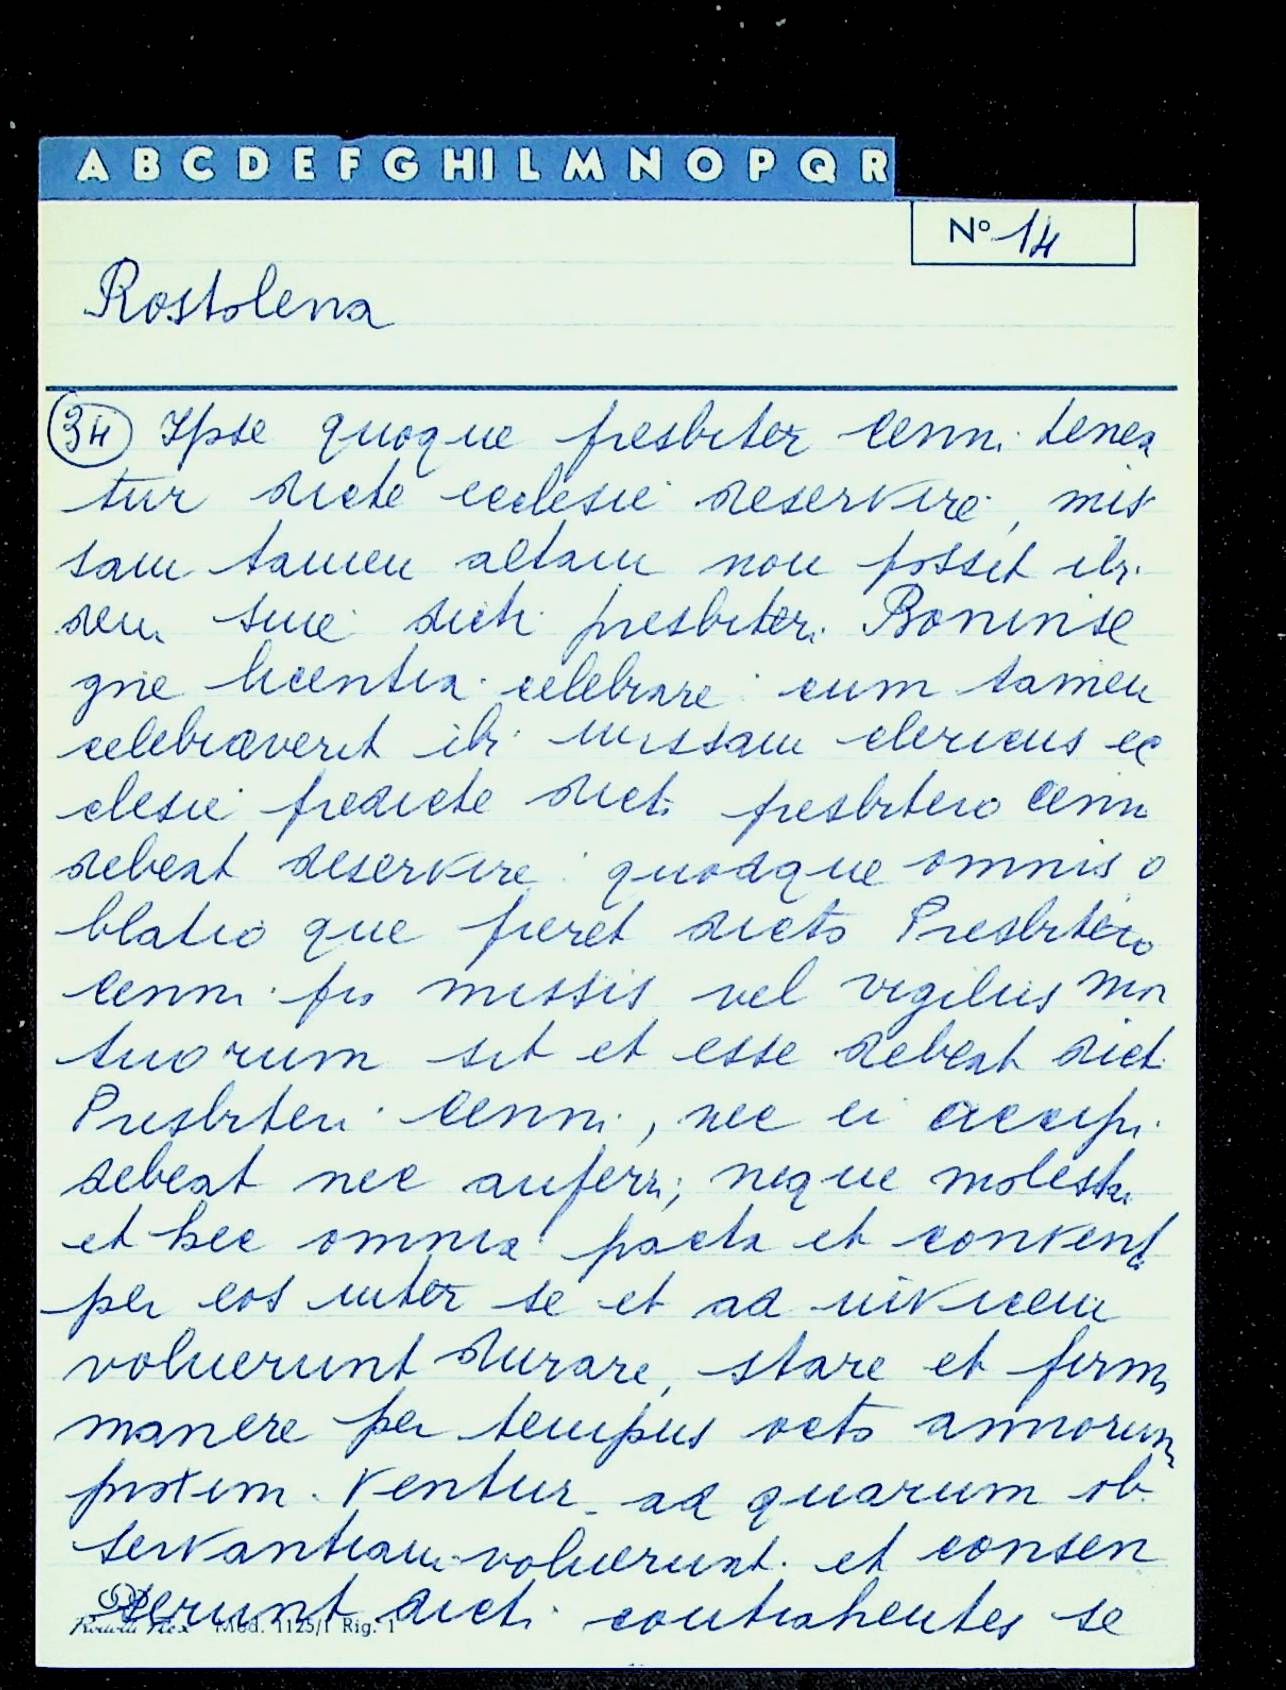 A B C D E F G HI L M N O P Q R
Nº 14
Rostolena
34 Ipse quoque presbiter Cenni tenea
tur dicte ecclesie deservire, mis
sam tamen altam non possit ibi
dem sine dicti presbiteri Boninse
gne licentia celebrare: cum tamen
celebraverit ibi missam clericus ec
clesie predicte dicti presbitero Cenni
debeat deservire: quodque omnis o
blatio que fieret dicto Presbitero
Cenni pro missis vel vigiliis mor
tuorum sit et esse debeat dicti
Presbiteri Cenni, nec ei accipi
debeat nec auferri; neque molestari
et hec omnia pacta et conventa
per eos inter se et ad invicem
voluerunt durare, stare et firma
manere per tempus octo annorum
proxim. ventur. ad quarum ob
servantiam voluerunt et consen
serunt dicti contrahentes se
Mod. 1125/1 Rig. 1